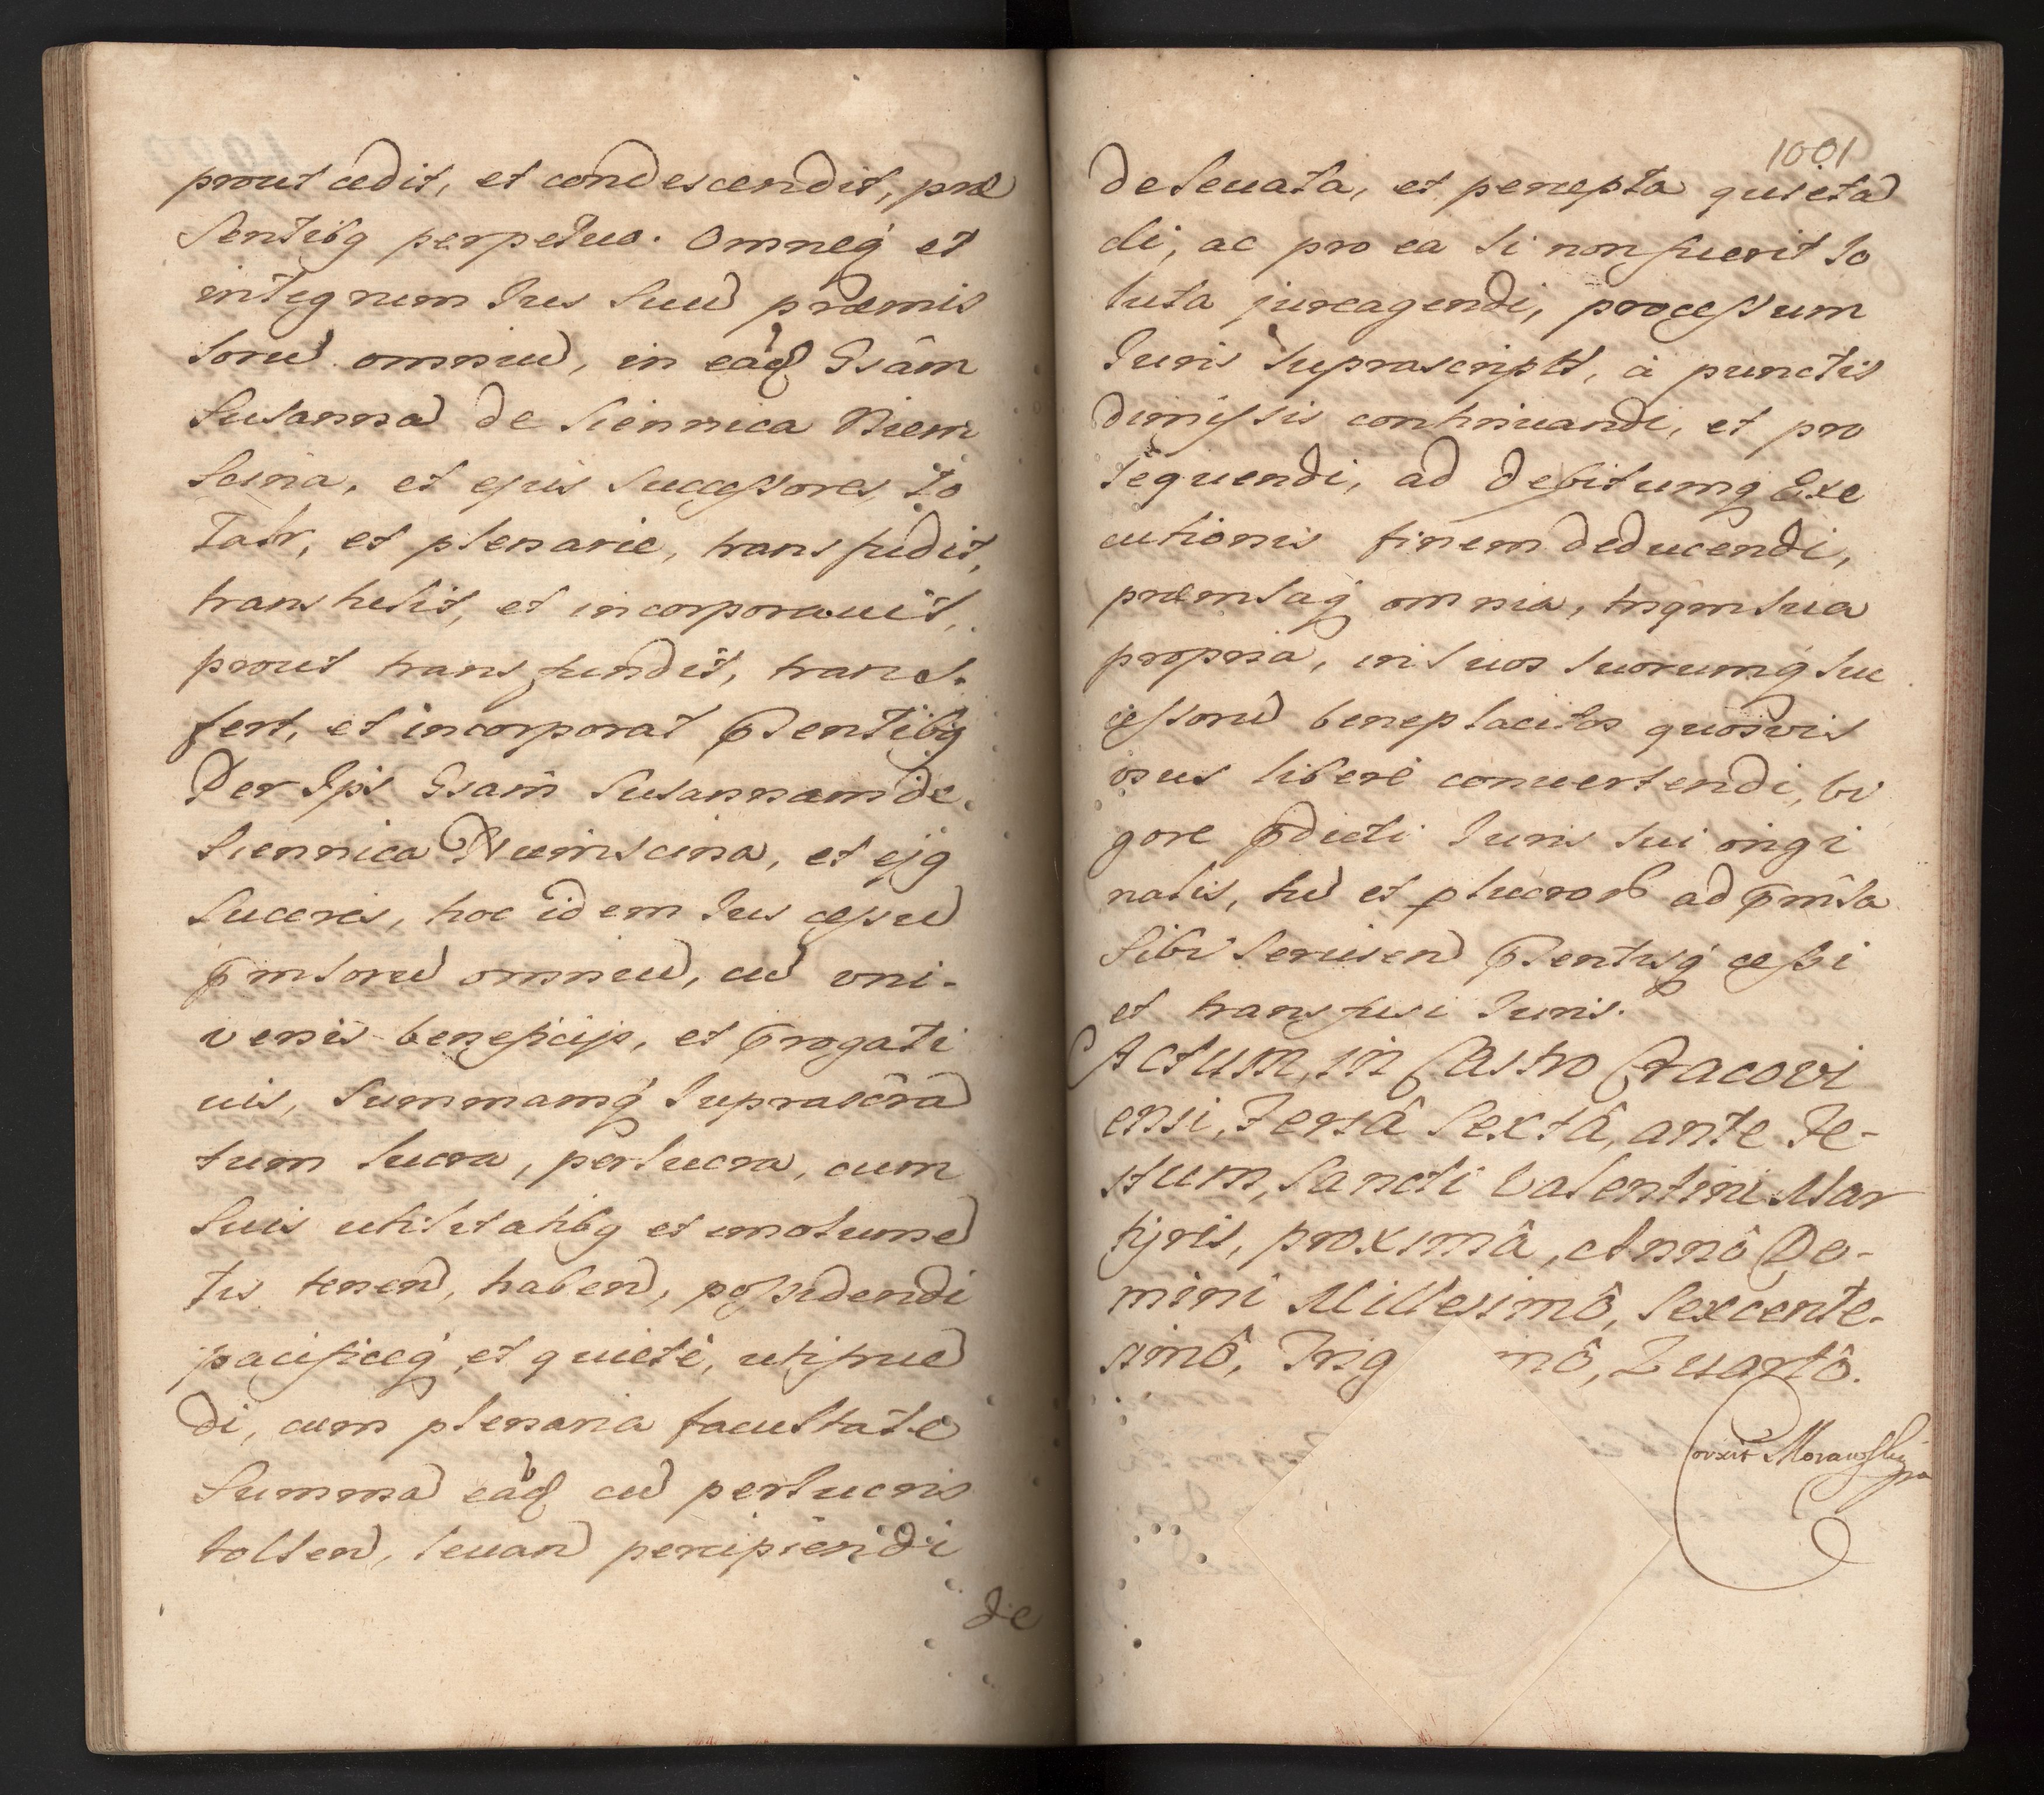 prout cedit, et condescendit, præ
sentibq perpetuo. Omneq et
integrum Ius suũ præmis
sorũ omniũ, in eãd Gsãm
Susannã de Siennica Niem
scina, et ejus successores, to
talr, et plenarie, transfudit,
transtulit, et incorporauit,
prout transfundit, trans-
fert, et incorporat psentibq
Per Ips Gsam̃ Susannam de
Siennica Niemscina, et ejq
succres, hoc idem Ius cessũ
pmsorũ omniũ, cũ vni-
versis beneficijs, et progati
uis, summamq suprascrã
tum lucra, perlucra, cum
suis utilitatibq et emolumẽ
tis tenen̄, haben̄, possidendi
pacificeq et quietè, utifruẽ
di, cum plenaria facultate
Summã eãd cũ perlucris
tollen̄, leuan̄ percipiendi
de
1001
de leuata, et percepta quietã
di, ac pro ea si non fuerit so
luta jure agendi, processum
Iuris suprascripti, à punctis
dimissis continuandi, et pro
sequendi, ad debitumq Exe
cutionis finem deducendi,
præmsaq omnia, tnqm sua
propria, in suos suorumq suc
cessorũ beneplacitos quosvis
vsus liberè conuertendi, vi
gore pdicti Iuris sui origi
nalis, tũ et plucror ad pm̃sa
sibi seruien̄ psentisq cessi
et transfusi Iuris.
Actum, in Castro Cracovi
ensi, Feriâ Sextâ, ante Fe-
stum, Sancti Valentini Mar
tyris, proximâ, Annô Do-
mini Millesimô, Sexcente-
simô, Trig mô, Quartô.
Corrxit Morawsky